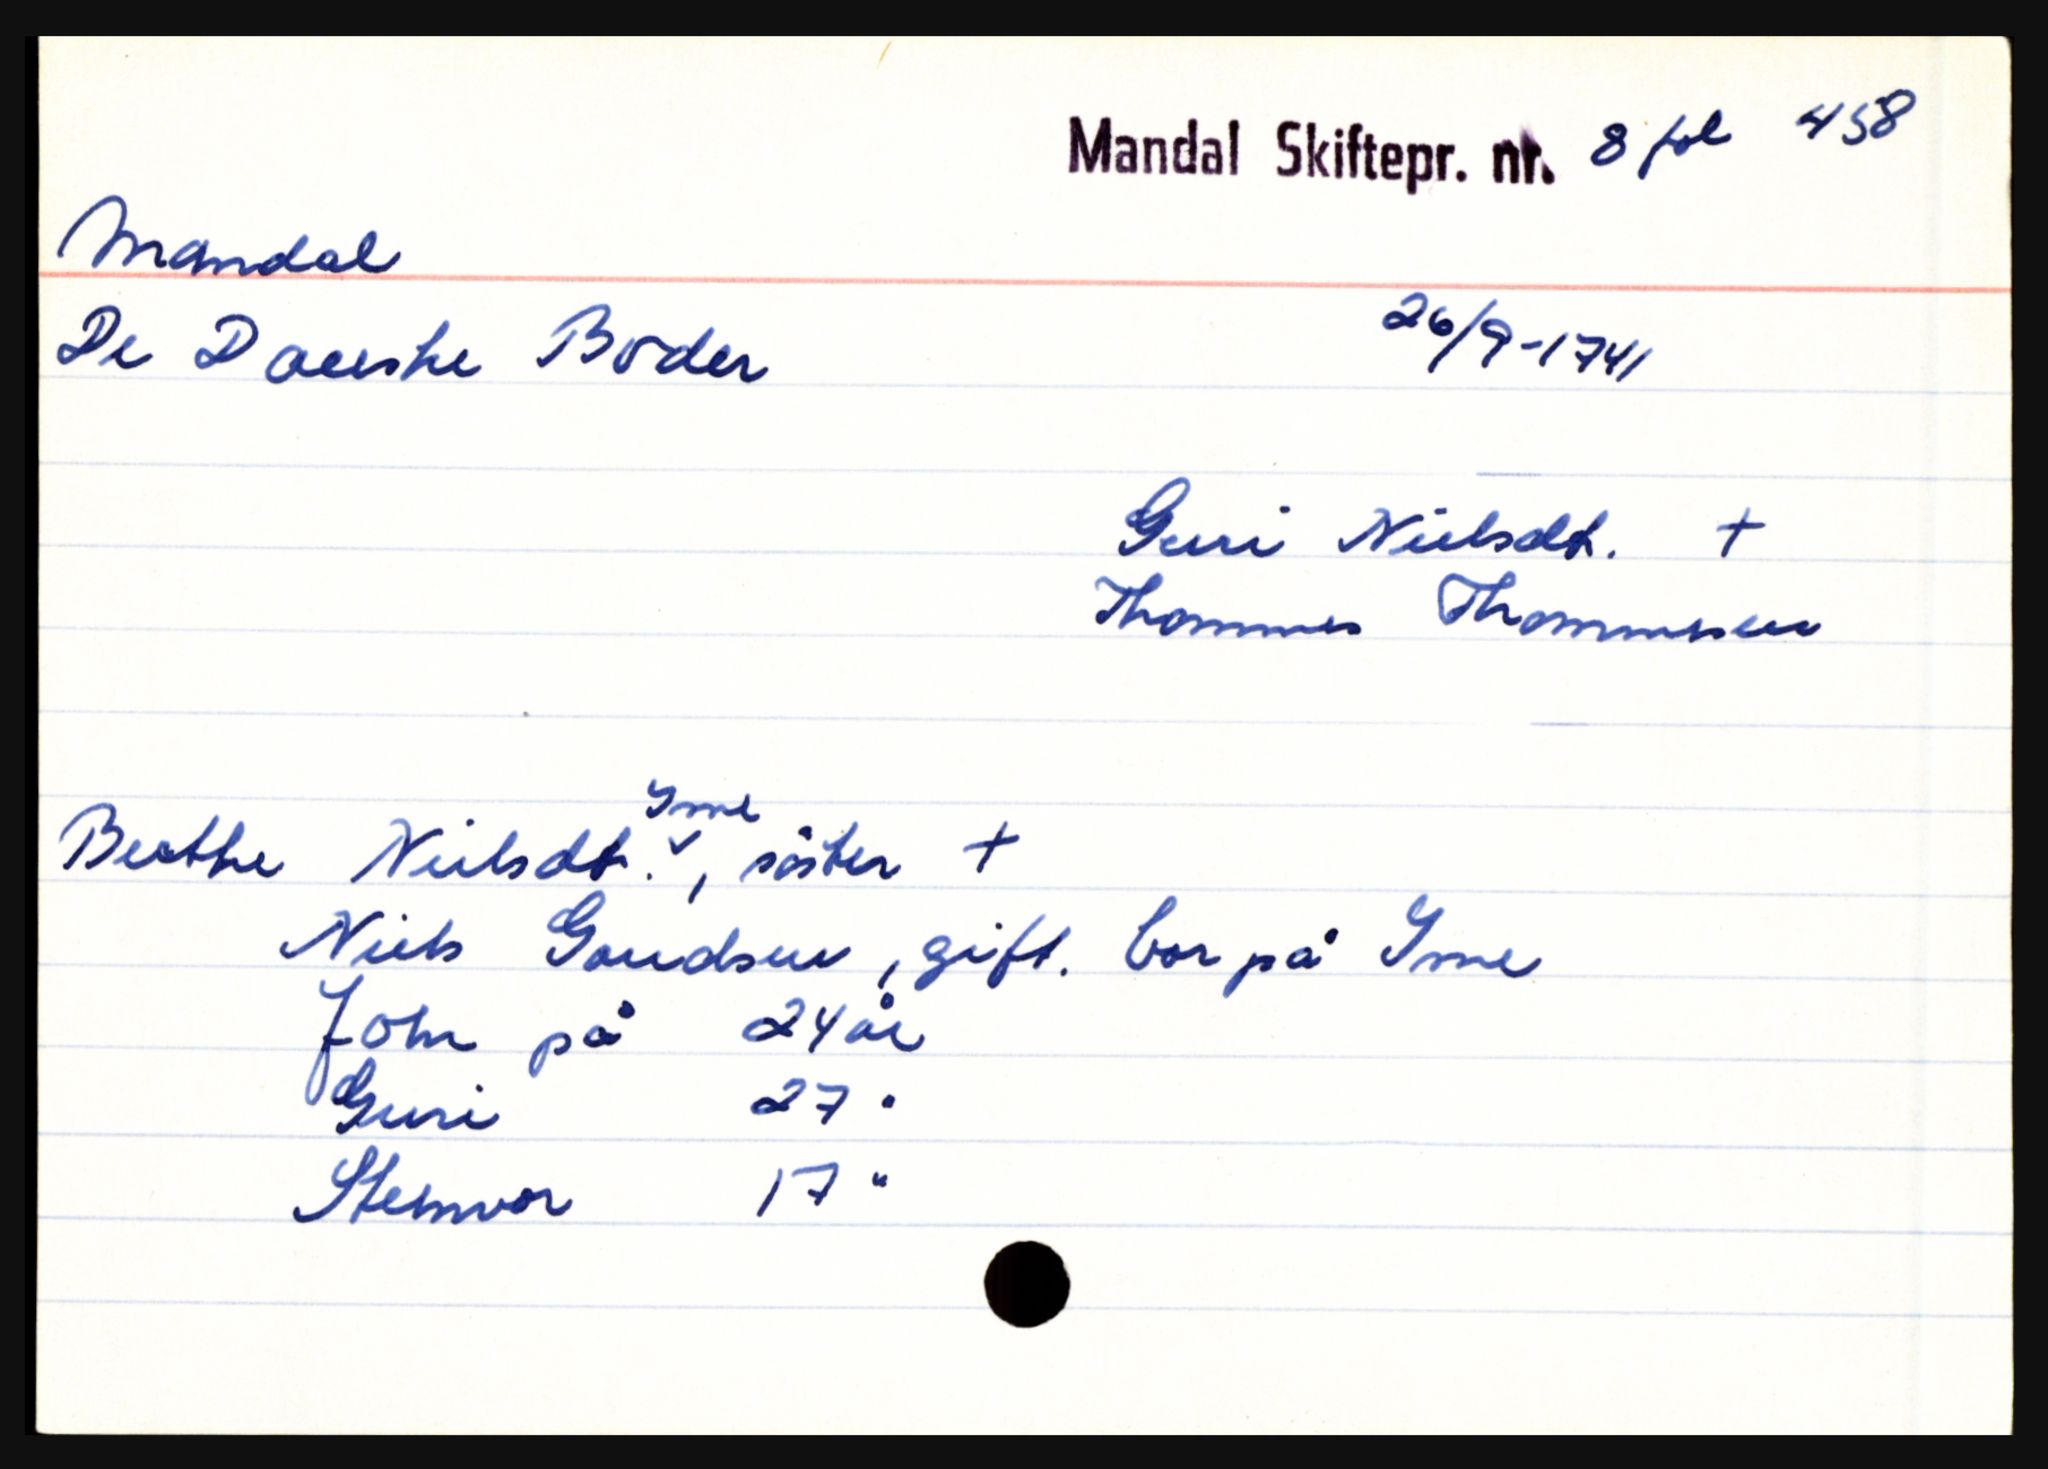 Mandal Skiftepr. nr. 8 fol 458
Mandal
De Danske Boder 26/9-1741
Guri Nielsdt. +
Thommes Thommesen
Yme
Berthe Nielsdt. ✓, söster +
Niels Gundsen, gift. bor på Yme
John på 24 år
Guri 27 "
Stenvor 17 "